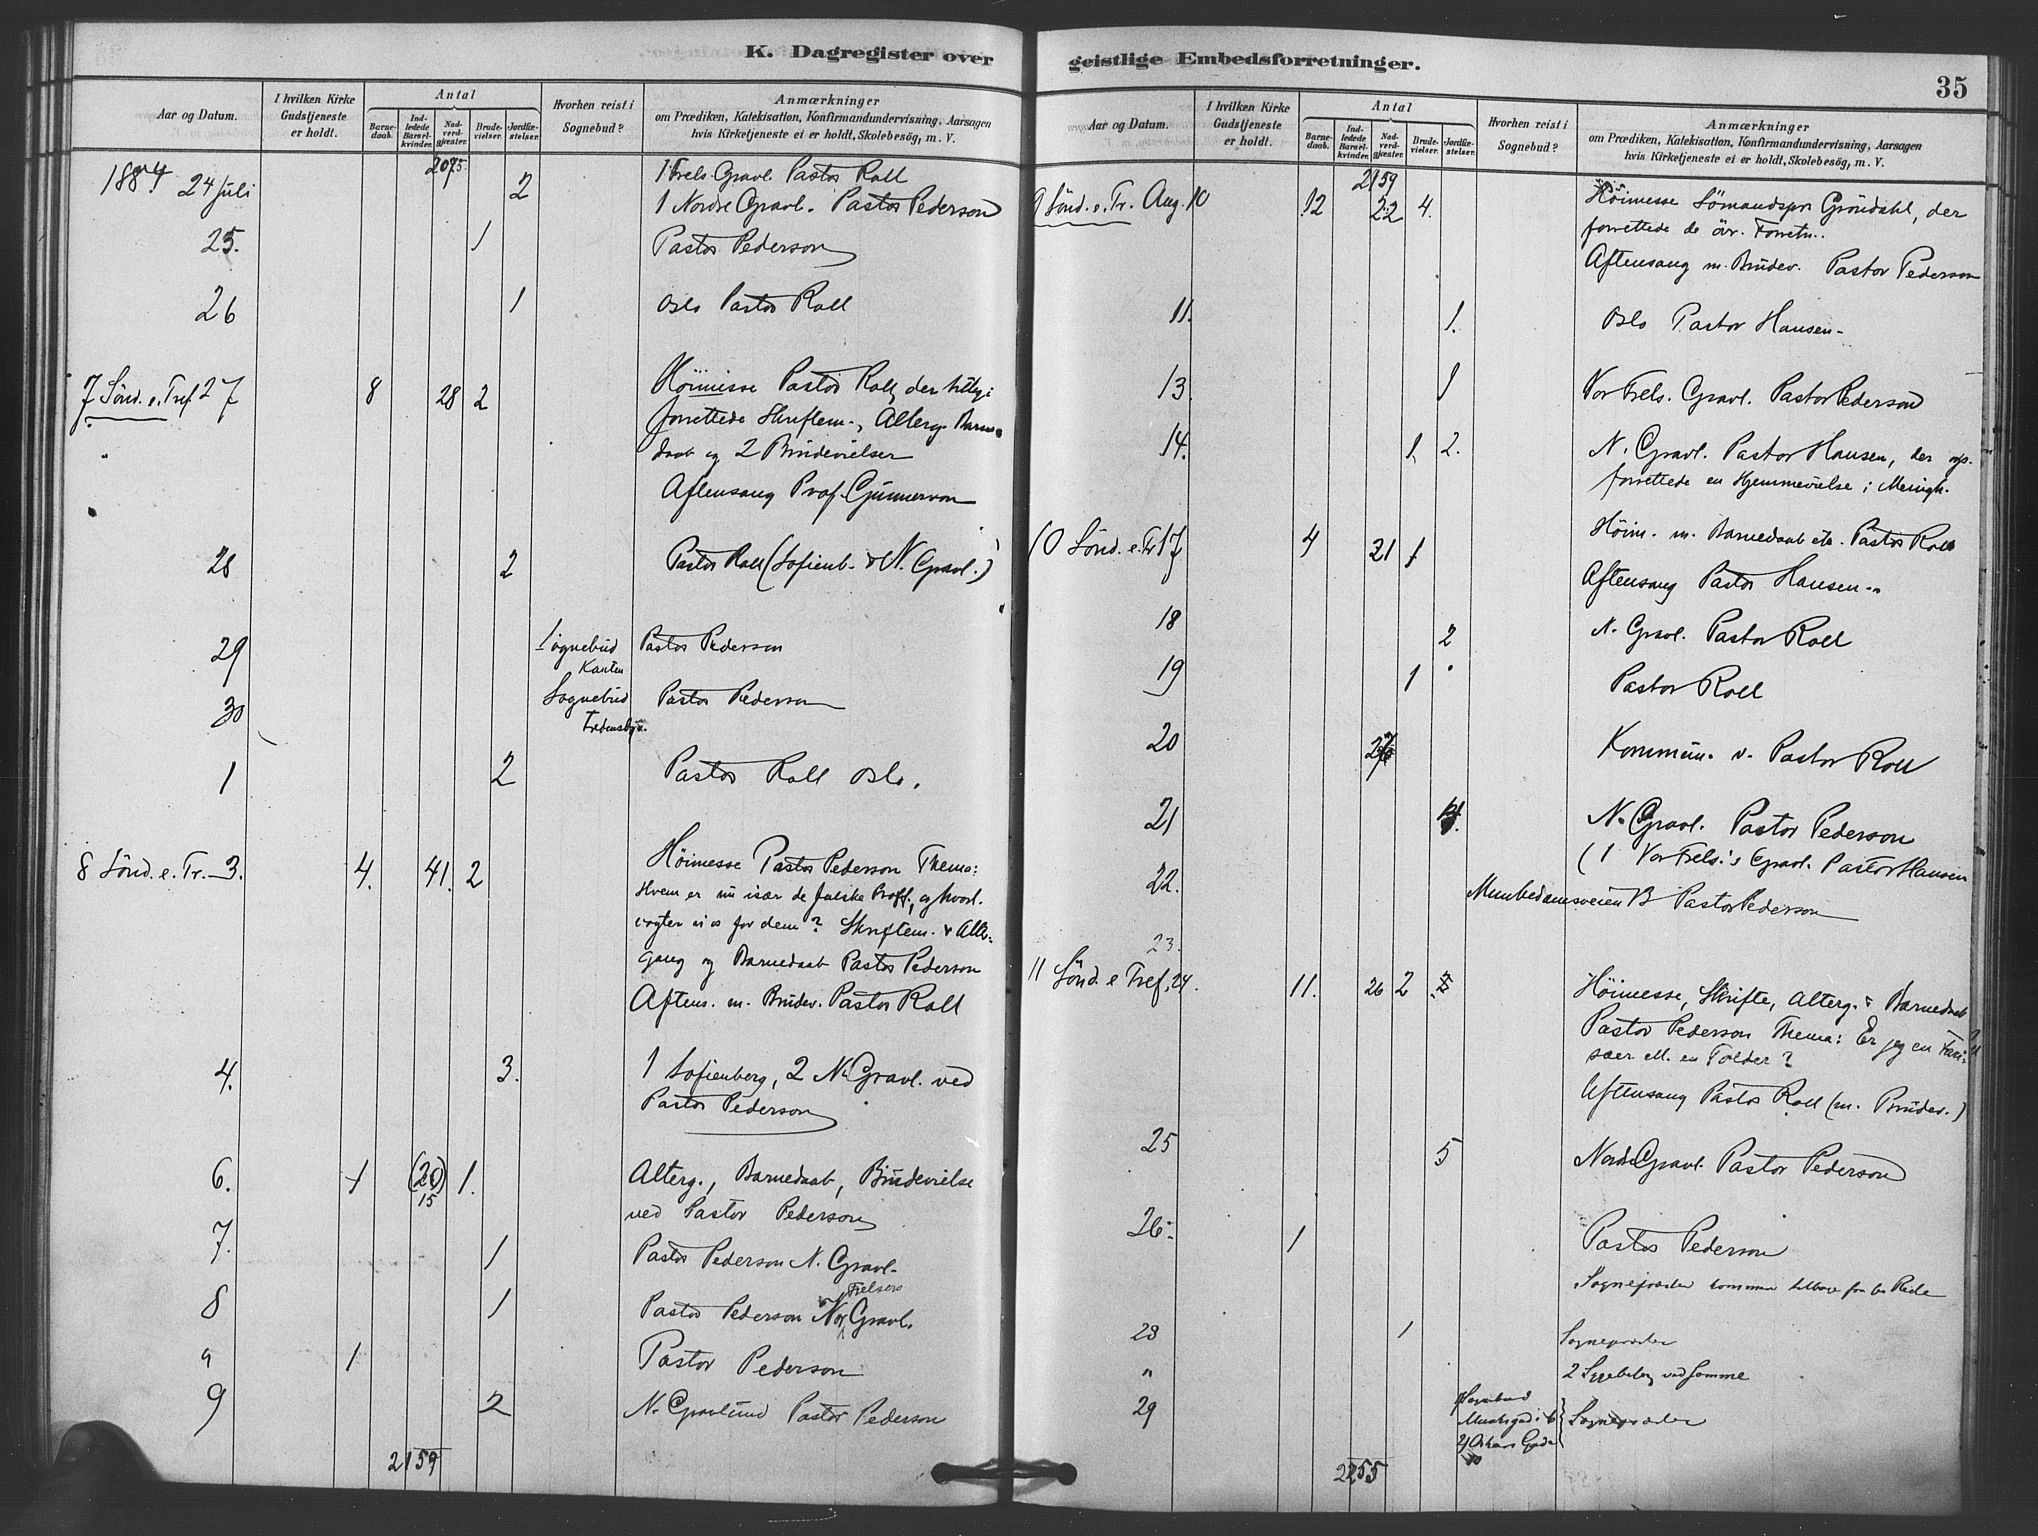 K. Dagregister over
Aar og Datum.
I hvilken Kirke Gudstjeneste er holdt.
Antal
Barne-daab.
Ind-ledede Barsel-kvinder.
Nad-verd-gjæster.
Brude-vielser.
Jordfæ-stelser.
Hvorhen reist i Sognebud?
Anmærkninger
om Prædiken, Katekisation, Konfirmandundervisning, Aarsagen
hvis Kirketjeneste ei er holdt, Skolebesøg, m. V.
2075.
1884 24 Juli 2 1 Frels. Gravl. Pastor Roll
1 Nordre Gravl. Pastor Pederson
25. 1 Pastor Pederson
26 1 Oslo Pastor Roll
7 Sønd. e. Tref 27 8 28 2 Høimesse Pastor Roll, der tillige
forrettede Skriftem., Alterg. Barne
daab og 2 Brudevielser
" Aftensang Prof. Gunnerson
28 2 Pastor Roll (Sofienb. & N. Gravl.)
29 Sognebud Pastor Pederson
30 Sognebud Pastor Pederson
1 2 Pastor Roll Oslo.
8 Sønd. e. Tr. 3. 4. 41. 2 Høimesse Pastor Pederson Thema:
Hvem er nu især de falske Proff., og hvorl.
vogter vi os for dem? Skriftem. & Alter-
gang og Barnedaab Pastor Pederson
Aftens. m. Brudev. Pastor Roll
4. 3. 1 Sofienberg, 2 N. Gravl. ved
Pastor Pederson
6. 1 (20) 15 1. Alterg., Barnedaab, Brudevielse
ved Pastor Pederson
7. 1 Pastor Pederson N. Gravl.
8 1 Pastor Pederson Vor Frelsers Gravl.
" 1 Pastor Pederson
9 2 N. Gravlund Pastor Pederson
2159
geistlige Embedsforretninger.
35
Aar og Datum.
I hvilken Kirke Gudstjeneste er holdt.
Antal
Barne-daab.
Ind-ledede Barsel-kvinder.
Nad-verd-gjæster.
Brude-vielser.
Jordfæ-stelser.
Hvorhen reist i Sognebud?
Anmærkninger
om Prædiken, Katekisation, Konfirmandundervisning, Aarsagen
hvis Kirketjeneste ei er holdt, Skolebesøg, m. V.
2159
9 Sønd. e. Tr. Aug. 10 12 22 4. Høimesse Sømandspr. Gröndahl, der
forrettede de övr. Forretn..
Aftensang m. Brudev. Pastor Pederson
11. 1. Oslo Pastor Hansen
13 1 Vor Frels. Gravl. Pastor Pederson
14. 1 2. N. Gravl. Pastor Hansen, der ogs.
forrettede en Hjemmevielse i Menigh.
10 Sönd. e. Tr 17 4 21 1 Höim. m. Barnedaab etc. Pastor Roll
Aftensang Pastor Hansen
18 2 N. Gravl. Pastor Roll
19 1 Pastor Roll
20 Kommun. v. Pastor Roll
21 N. Gravl. Pastor Pederson
(1 Vor Frels.'s Gravl. Pastor Hansen
22. Munkedamsveien Pastor Pederson
23.
11 Sönd. e Tref. 24. 11. 26 2 Höimesse, Skrifte, Alterg. & Barnedaab
Pastor Pederson Thema: Er jeg en Fari-
sæer ell. en Tolder?
Aftensang Pastor Roll (m. Brudev.)
25 5 Nordre Gravl. Pastor Pederson
26. 1 Pastor Pederson
Sognepræsten kommen tilbage fra en Reise
28 1 Sognepræsten
" 2 ved samme
29 Sognebud Sognepræsten
2 Oskars Gade
2255